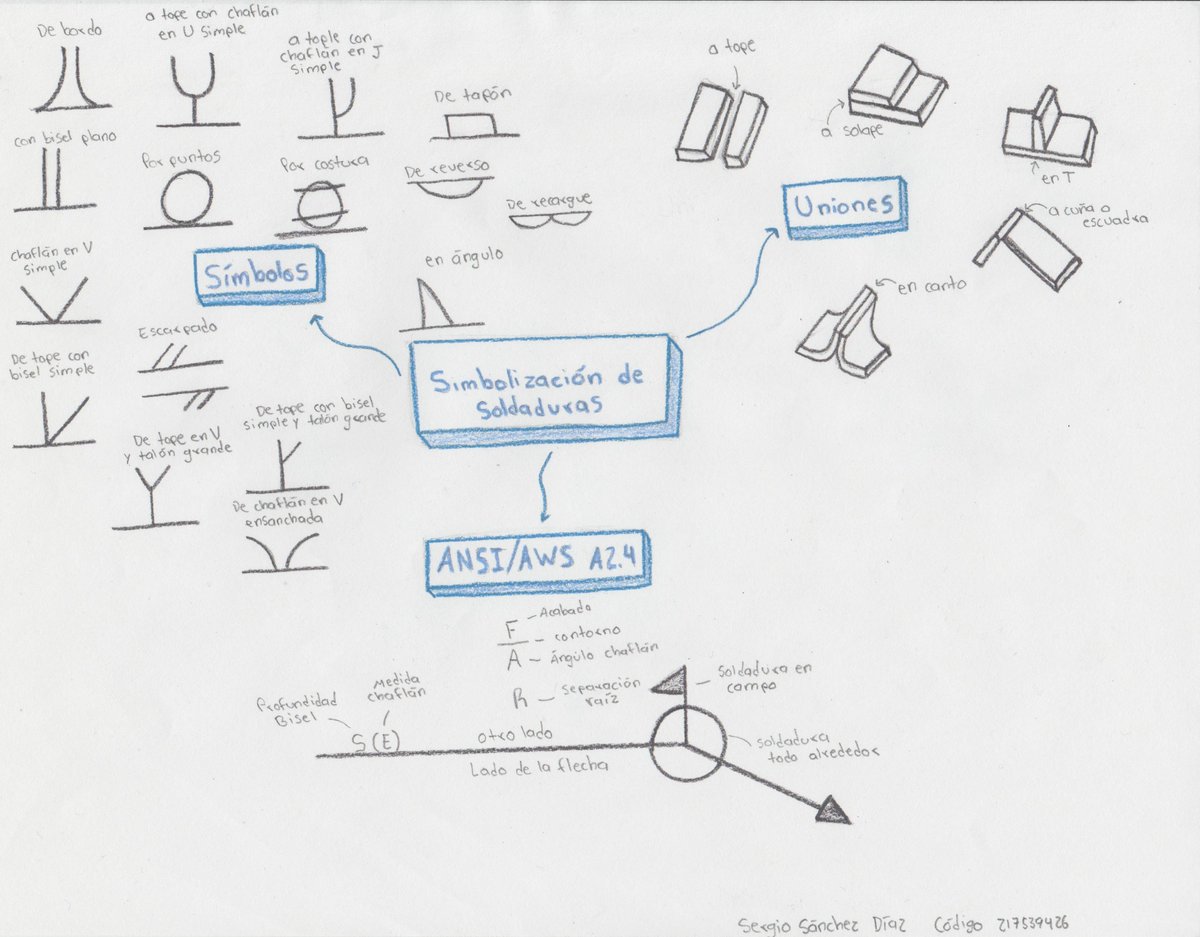 De bordo
a tope con chaflán
en U simple
a tople con
chaflán en J
simple
De tapón
con bisel plano
Por puntos
Por costura
De reverso
De recargue
chaflán en V
simple
Símbolos
en ángulo
Escarpado
De tope con
bisel simple
De tope con bisel
simple y talón grande
De tope en V
y talón grande
De chaflán en V
ensanchada
a tope
a solape
en T
Uniones
a cuña o
escuadra
en canto
Simbolización de
Soldaduras
ANSI/AWS A2.4
F - Acabado
- contorno
A - Ángulo chaflán
R - Separación
raíz
Soldadura en
campo
Medida
chaflán
Profundidad
Bisel
S(E)
otro lado
Lado de la flecha
soldadura
todo alrededor
Sergio Sánchez Díaz Código 217539426